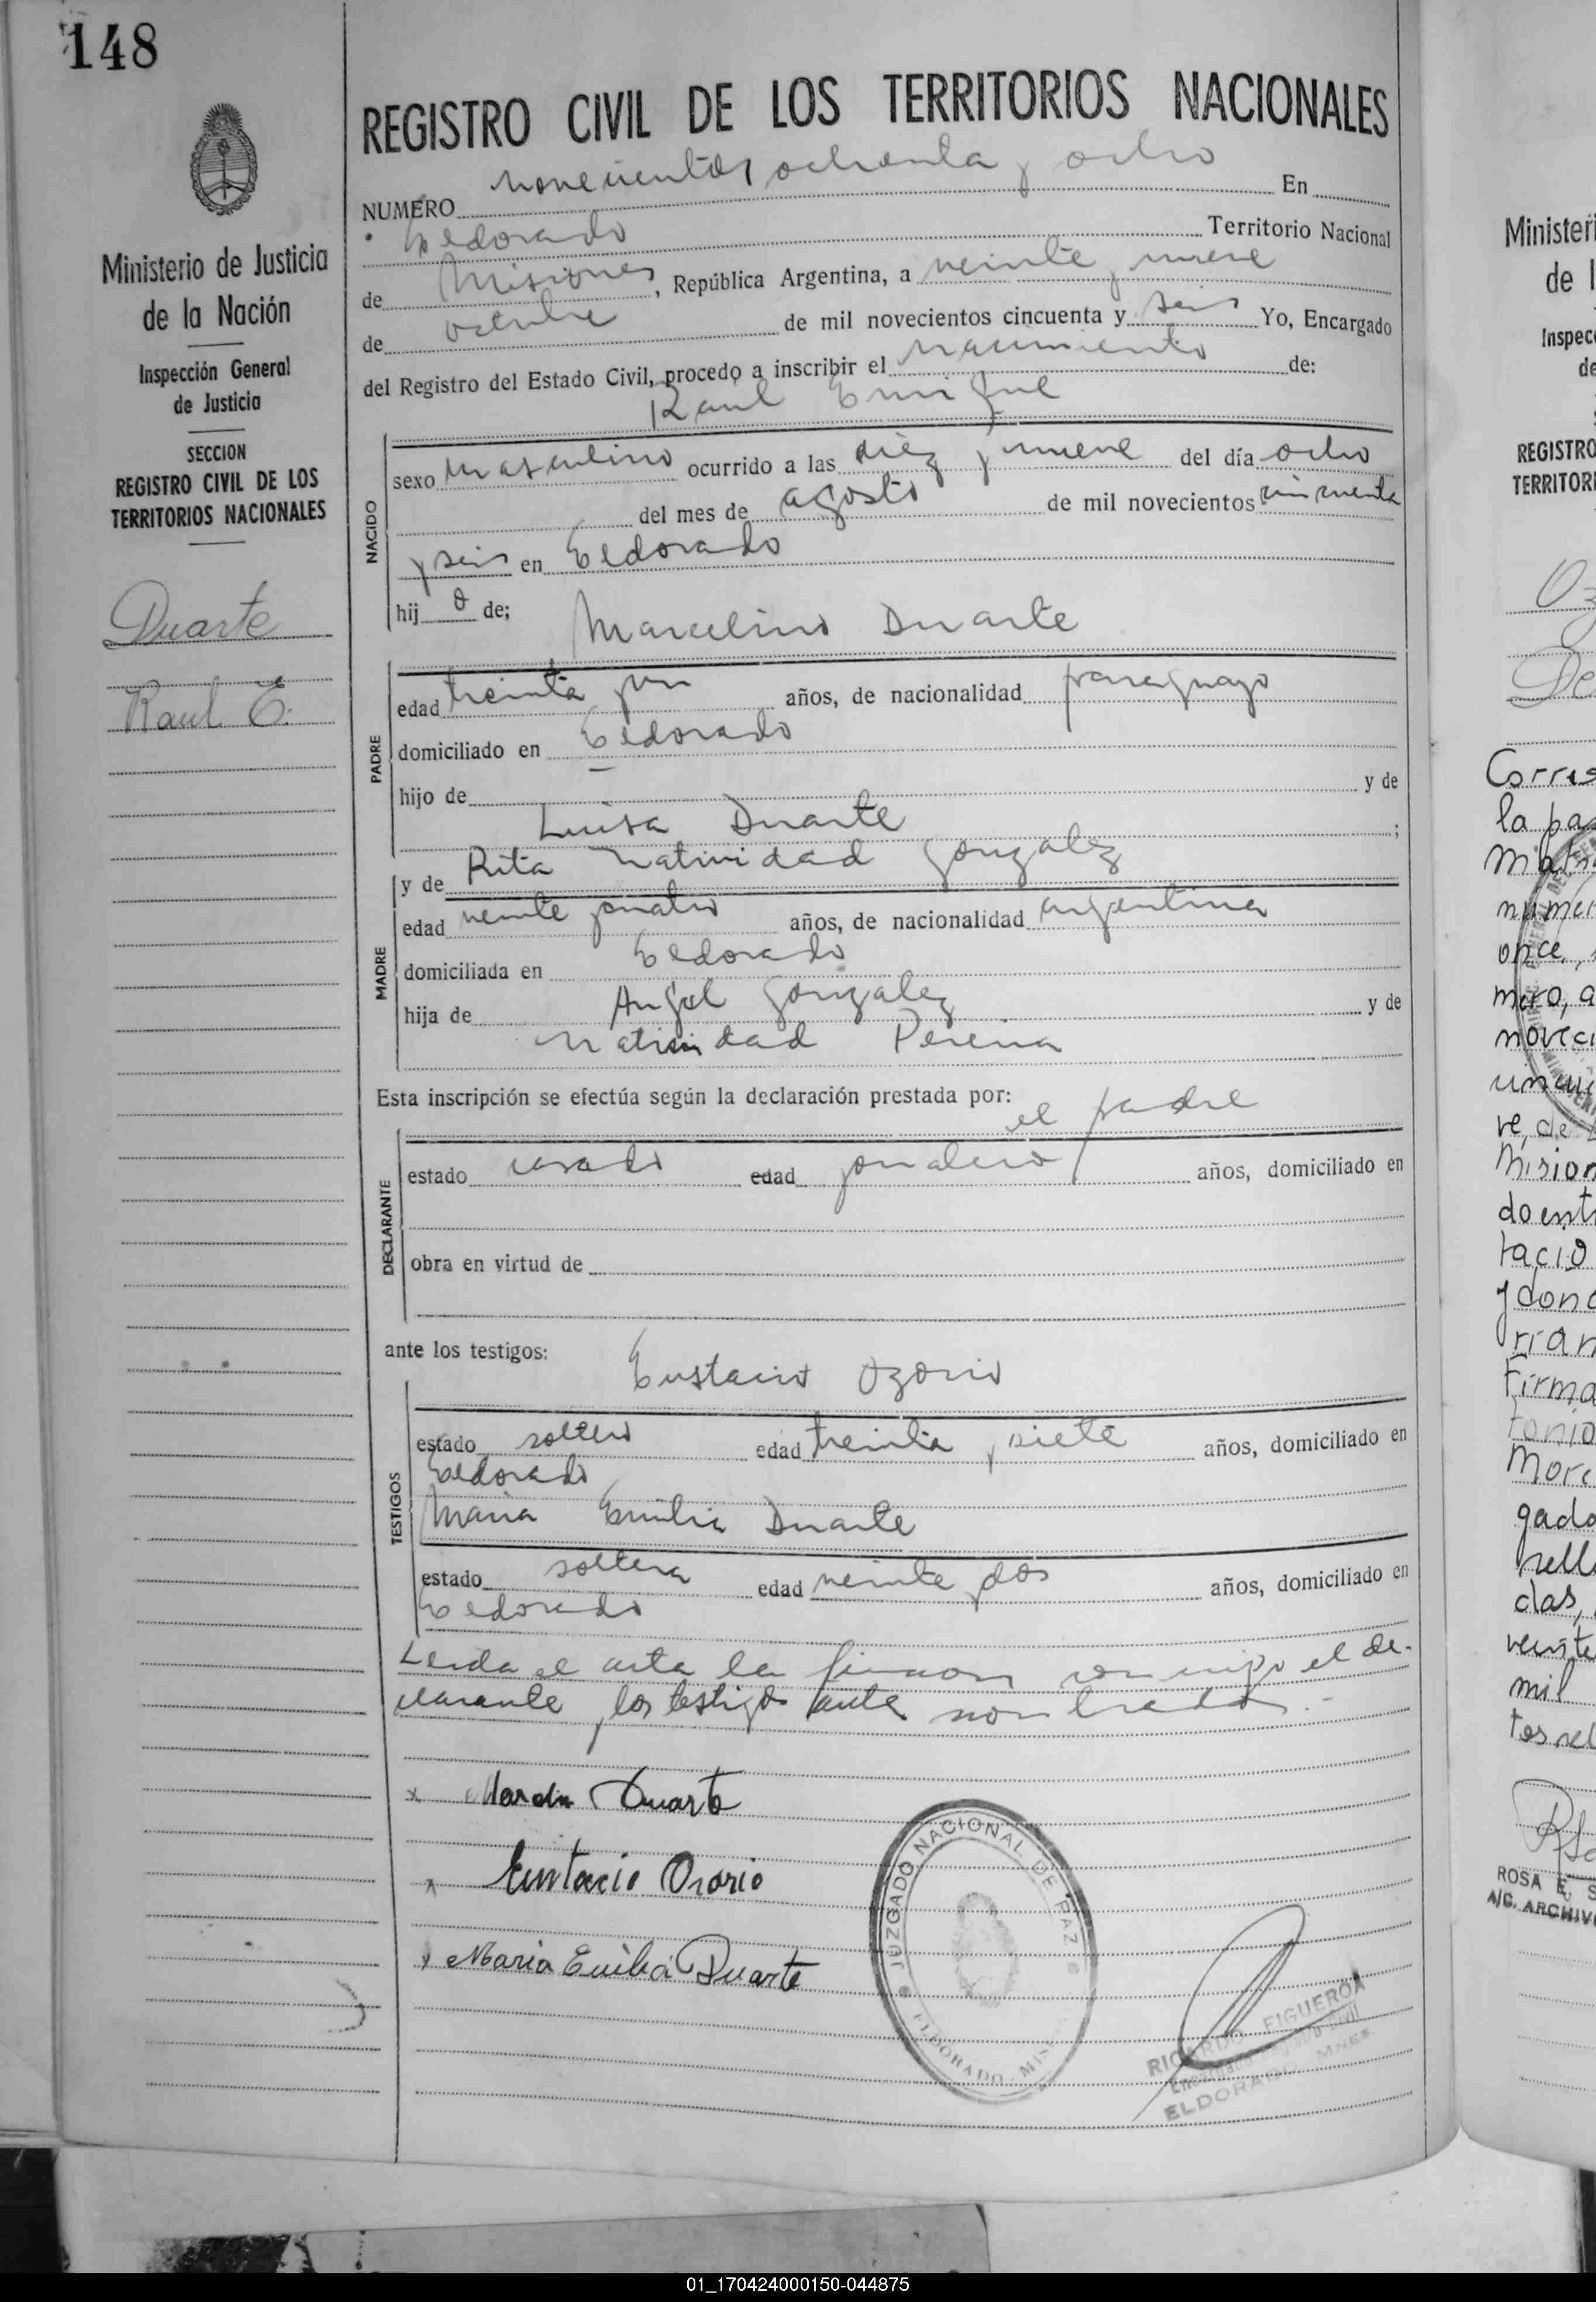 148
REGISTRO CIVIL DE LOS TERRITORIOS NACIONALES
NUMERO novecientos ochenta y ocho En
Eldorado Territorio Nacional
de Misiones, República Argentina, a veinte y nueve
de octubre de mil novecientos cincuenta y seis Yo, Encargado
del Registro del Estado Civil, procedo a inscribir el nacimiento de:
Raul Enrique
Ministerio de Justicia
de la Nación
Inspección General
de Justicia
SECCION
REGISTRO CIVIL DE LOS
TERRITORIOS NACIONALES
Duarte
Raul E.
NACIDO
sexo masculino ocurrido a las diez y nueve del día ocho
del mes de agosto de mil novecientos cincuenta
y seis en Eldorado
hij o de; Marcelino Duarte
PADRE
edad treinta y un años, de nacionalidad paraguayo
domiciliado en Eldorado
hijo de — y de
Luisa Duarte ;
y de Rita Natividad Gonzalez
MADRE
edad veinte y cuatro años, de nacionalidad argentina
domiciliada en Eldorado
hija de Angel Gonzalez y de
Natividad Pereira
Esta inscripción se efectúa según la declaración prestada por: el padre
DECLARANTE
estado casado edad jornalero años, domiciliado en
obra en virtud de
ante los testigos: Eustacio Ozorio
TESTIGOS
estado soltero edad treinta y siete años, domiciliado en
Eldorado
Maria Emilia Duarte
estado soltera edad veinte y dos años, domiciliado en
Eldorado
Leida el acta la firman conmigo el de-
clarante y los testigos ante nombrados.-
x Duarte
Eustacio Osorio
x Maria Emilia Duarte
JUZGADO NACIONAL DE PAZ
ELDORADO - MIS
RICARDO FIGUEROA
Encargado Registro Civil
ELDORADO MNES.
Ministeri
de l
Inspec
de
REGISTRO
TERRITORI
De
Corres
la pa
numer
once,
mero, a
noveci
Mision
do ent
tacio
y dond
Firma
tonio
More
gado
sell
das,
veinte
mil
ROSA E. S
A/C. ARCHIV
01_170424000150-044875